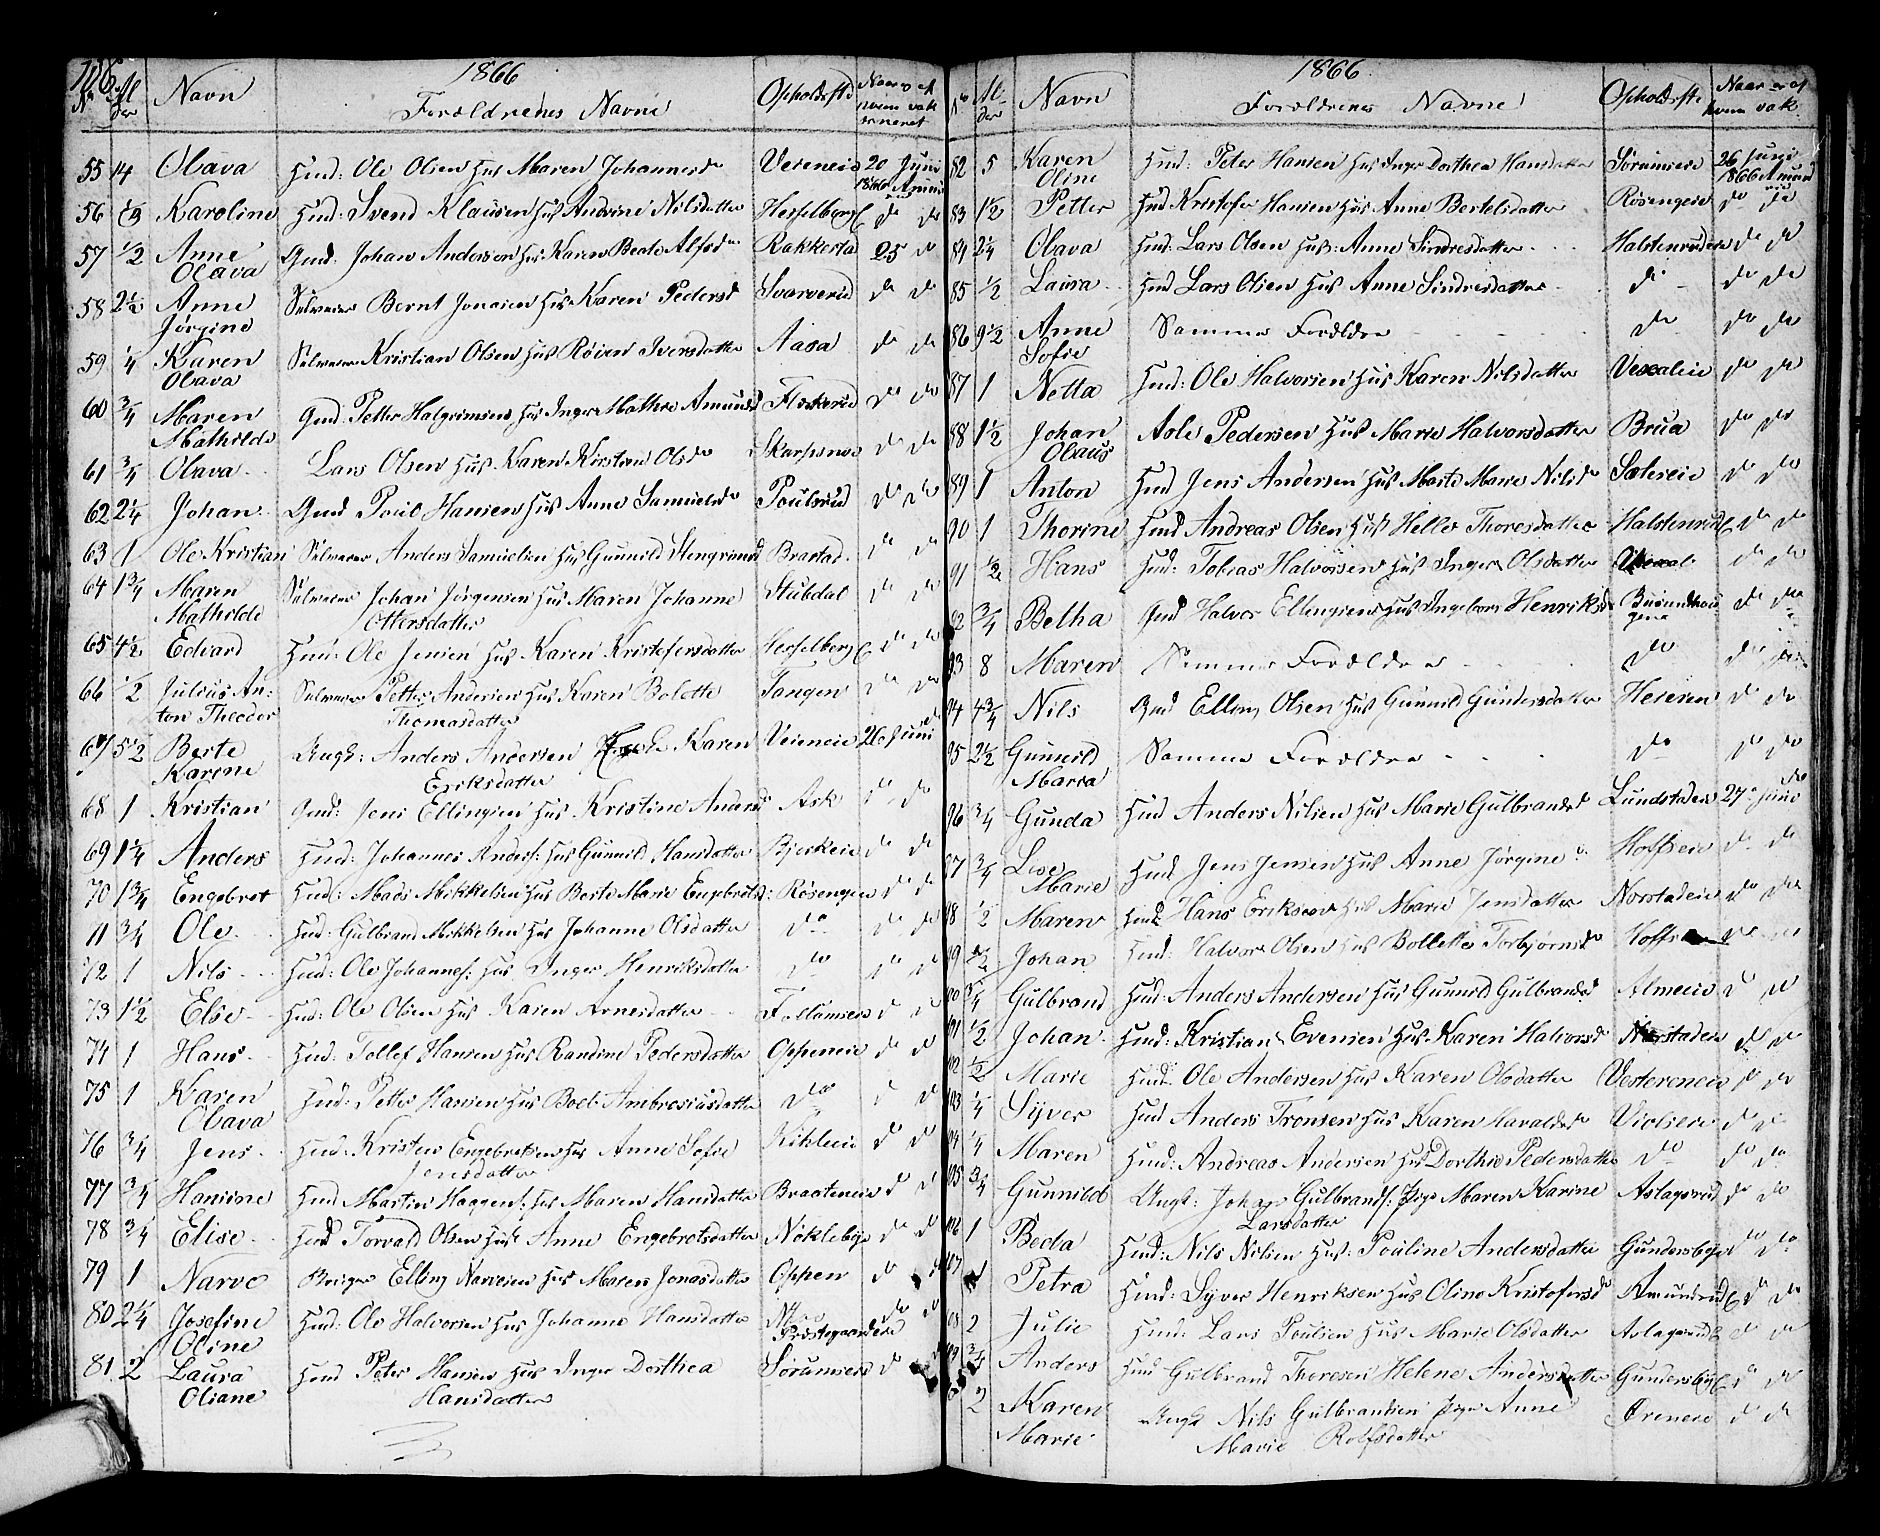 1866
No Al der Navn Forældrenes Navne Opholdssted Naar & af hvem vak cineret
55 14 Olava Husd: Ole Olsen Hus Maren Johannesd Veseneie 20 Juni 1866
56 Karoline Husd: Svend Klausen Hus Andrine Nilsdatter Hesselberg E do do
57 1/2 Anne Olava Gmd: Johan Andersen Hus Karen Beate Alfsd Rakkestad 25 do
58 2 1/2 Anne Jørgine Selveier Bernt Jonasen Hus Karen Pedersd Svarverud do do
59 1/4 Karen Olava Selveier Kristian Olsen Hus Røien Iversdatter Aasa do do
60 3/4 Maren Mathilde Gmd: Petter Halgrimsen Hus Inger Mathea Amunds do do
61 3/4 Olava Lars Olsen Hus Karen Kirstine Olsd Skarpsno do do
62 2 1/4 Johan Gmd Poul Hansen Hus Anne Samuelsd Poulsrud do do
63 1 Ole Kristian Selveier Anders Samuelsen Hus Gunnild Stengrimsd Brastad do do
64 1 3/4 Maren Mathilde Selveier Johan Jørgensen Hus Maren Johanne Ottersdatter Stubdal do do
65 4 1/2 Edvard Husd: Ole Jensen Hus Karen Kristofersdatter Hesselberg E do do
66 1/2 Julius Anton Theodor Selveier Petter Andersen Hus Karen Bolette Thomasdatter Tangen do do
67 5 1/2 Berte Karine Ungk: Anders Andersen Karen Eriksdatter Veieneie 26 Juni
68 1 Kristian Gmd: Jens Ellingsen Hus Kristine Andersd Ask do do
69 1 1/4 Anders Husd: Johannes Anders: Hus Gunnild Hansdatter Bjerkeie do do
70 1 3/4 Engebret Husd: Mads Mikkelsen Hus Berte Marie Engebretsd: Røsengeie do do
71 3/4 Ole Husd: Gulbrand Mikkelsen Hus Johanne Olsdatter do do do
72 1 Nils Husd: Ole Johannes: Hus Inger Henriksdatter do do do
73 1 1/2 Else Husd: Ole Olsen Hus Karen Arnesdatter do
74 1 Hans Husd: Tollef Hansen Hus Randine Pedersdatter Oppeneie do do
75 1 Karen Olava Husd: Petter Hansen Hus Boel Ambrosiusdatter do do do
76 3/4 Jens Husd: Kristen Engebretsen Hus Anne Sofie Jensdatter Kihleeie do do
77 3/4 Hansine Husd Martin Haagens: Hus Maren Hansdatter Braateneie do do
78 3/4 Elise Husd Torvald Olsen Hus Anne Engebretsdatter Nøklebye do do
79 1 Narve Elling Narvesen Hus Maren Jonasdatter Oppen do do
80 2 1/4 Josefine Oline Husd: Ole Halvorsen Hus Johanne Hansdatter Præstegaardeie do do
81 2 Laura Oliane Husd Peter Hansen Hus Inger Dorthea Hansdatter Sørumseie do
1866
No Al der Navn Forældrenes Navne Opholdsste Naar & af hvem vak.
82 5 Karen Oline Husd: Peter Hansen Hus Inger Dorthea Hansdatter Sørumseie 26 Juni 1866
83 1 1/2 Petter Husd Kristofer Hansen Hus Anne Bertelsdatter Røsengeie do do
84 2 1/4 Olava Husd: Lars Olsen Hus: Anne Sindresdatter Halstenrudeie do do
85 1/2 Laura Husd Lars Olsen Hus Anne Sindresdatter do do do
86 9 1/2 Anne Sofie Samme Forældre do do do
87 1 Netta Husd: Ole Halvorsen Hus Karen Nilsdatter do do
88 1 1/2 Johan Olaus Asle Pedersen Hus Marie Halvorsdatter Brua do do
89 1 Anton Husd Jens Andersen Hus Marte Marie Nilsd Sætereie do do
90 1 Thorine Husd Andreas Olsen Hus Helle Thoresdatter Halstenrud E do do
91 1/2 Hans Husd: Tobias Halvorsen Hus Inger Olsdatter do do
92 3/4 Betha Gmd Halvor Ellingsen Hus Ingeborg Henriksd do do
93 8 Maren Samme Forældre do do
94 4 3/4 Nils Gmd Elling Olsen Hus Gunnild Gundersdatter do do
95 2 1/2 Gunnild Maria Samme Forældre do do do
96 3/4 Gunda Husd Anders Nilsen Hus Marie Gulbrandsd Lundstadeie 27 Juni
97 3/4 Lise Marie Husd Jens Jensen Hus Anne Jørgine Hoffseie do do
98 1/2 Maren Husd Hans Eriksen Hus Marie Jensdatter Norstadeie do do
99 Johan Husd: Halvor Olsen Hus Bollette Torbjørnsd do do
00 3/4 Gulbrand Husd: Anders Andersen Hus Gunnild Gulbrandsd Almeeie do do
01 1/2 Johan Husd: Kristian Evensen Hus Karen Halvorsd Norstadeie do do
02 1/2 Marie Husd: Ole Andersen Hus Karen Olsdatter Vestereneie do do
03 1/4 Syver Husd Anders Tronsen Hus Karen Haraldsd do do
04 1/4 Maren Husd: Andreas Andersen Hus Dorthe Pedersdatter do do do
05 3/4 Gunnild Ungk: Johan Gulbrands: Pige Maren Karine Larsdatter Aslagsrud do do
06 1 Beda Husd: Nils Nilsen Hus: Pouline Andersdatter Gundersbye do do
07 1 Petra Husd: Syver Henriksen Hus Oline Kristofersd Amundrud E do do
08 2 Julie Husd: Lars Poulsen Hus Marie Olsdatter Aslagsrud E do do
09 3/4 Anders Husd Gulbrand Thoresen Helene Andersdatter Gundersby E do do
2 Karen Marie Ungk Nils Gulbrandsen Pige Anne Marie Rolfsdatter do do